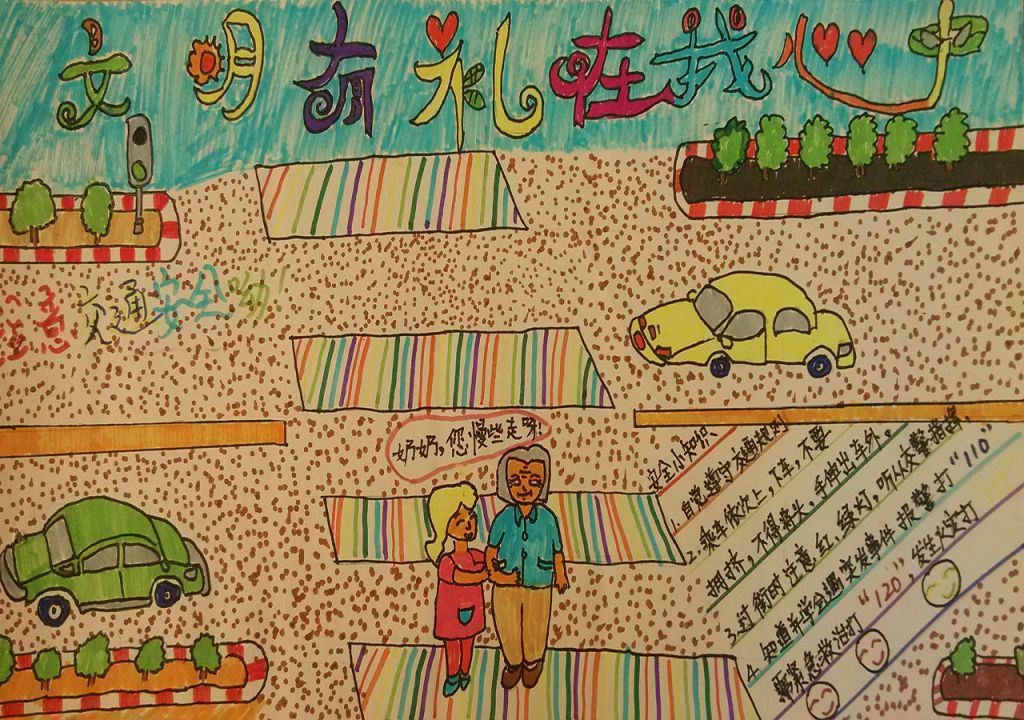 文明有礼在我心中
注意交通安全呦!
奶奶,您慢些走呀!
安全小知识
1.自觉遵守交通规则
2.乘车依次上,下车,不要
拥挤,不得将头。手伸出车外。
3.过街时注意红、绿灯,听从交警指挥,
4.知道并学会遇突发事件报警打“110”
需紧急救治打“120”,发生火灾打